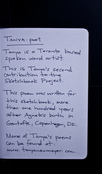 Tanya: poet
Tanya is a Toronto based
spoken word artist.
This is Tanya's second
contribution to the
Sketchbook Project.
This poem was written for
this sketchbook, more
than one hundred years
after Agnete's birth in
Gentofte, Copenhagen, DK.
More of Tanya's poems
can be found at: